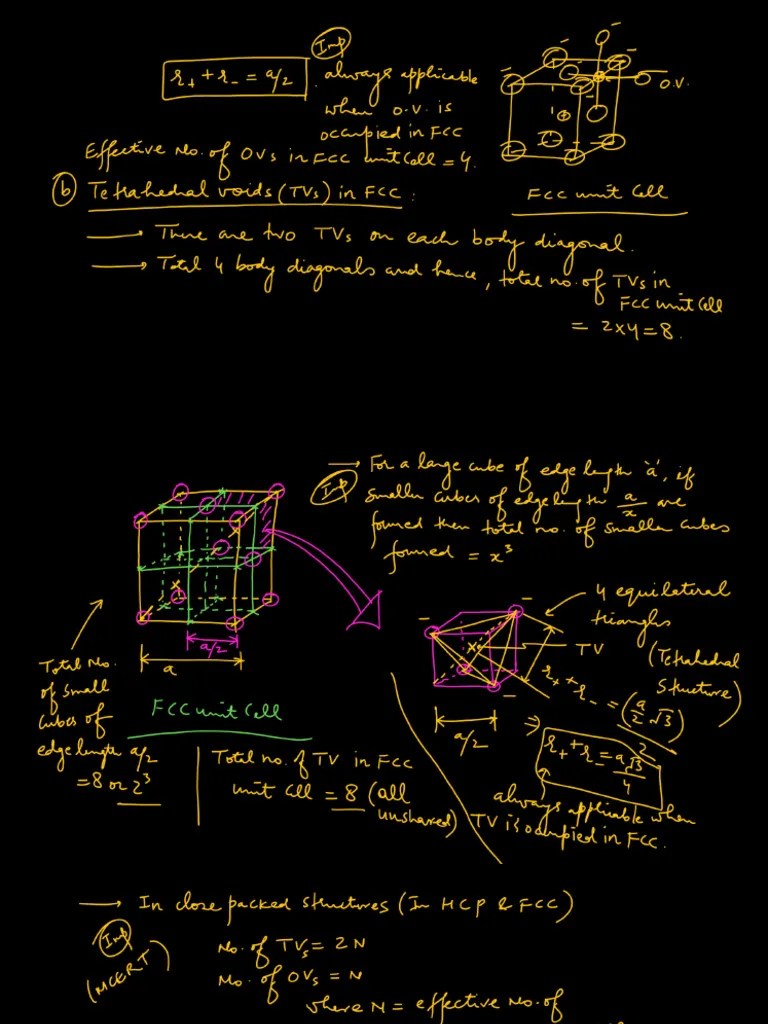 Imp
r₊ + r₋ = a/2
always applicable
when O.V. is
occupied in FCC
O.V.
Effective No. of OVs in FCC unit cell = 4.
FCC unit cell
(b) Tetrahedral voids (TVs) in FCC:
→ There are two TVs on each body diagonal.
→ Total 4 body diagonals and hence, total no. of TVs in
FCC unit cell
= 2×4 = 8.
→ For a large cube of edge length 'a', if
Imp
smaller cubes of edge length a/x are
formed then total no. of smaller cubes
formed = x³
a/2
a
FCC unit cell
Total No.
of small
cubes of
edge length a/2
= 8 or 2³
Total no. of TV in FCC
unit cell = 8 (all
unshared)
4 equilateral
triangles
(Tetrahedal
structure)
TV
r₊ + r₋ = (a/2 √3)
2
a/2
⇒ r₊ + r₋ = a√3/4
always applicable when
TV is occupied in FCC.
→ In close packed structures (In HCP & FCC)
Imp
(NCERT)
No. of TVs = 2N
No. of OVs = N
where N = effective No. of